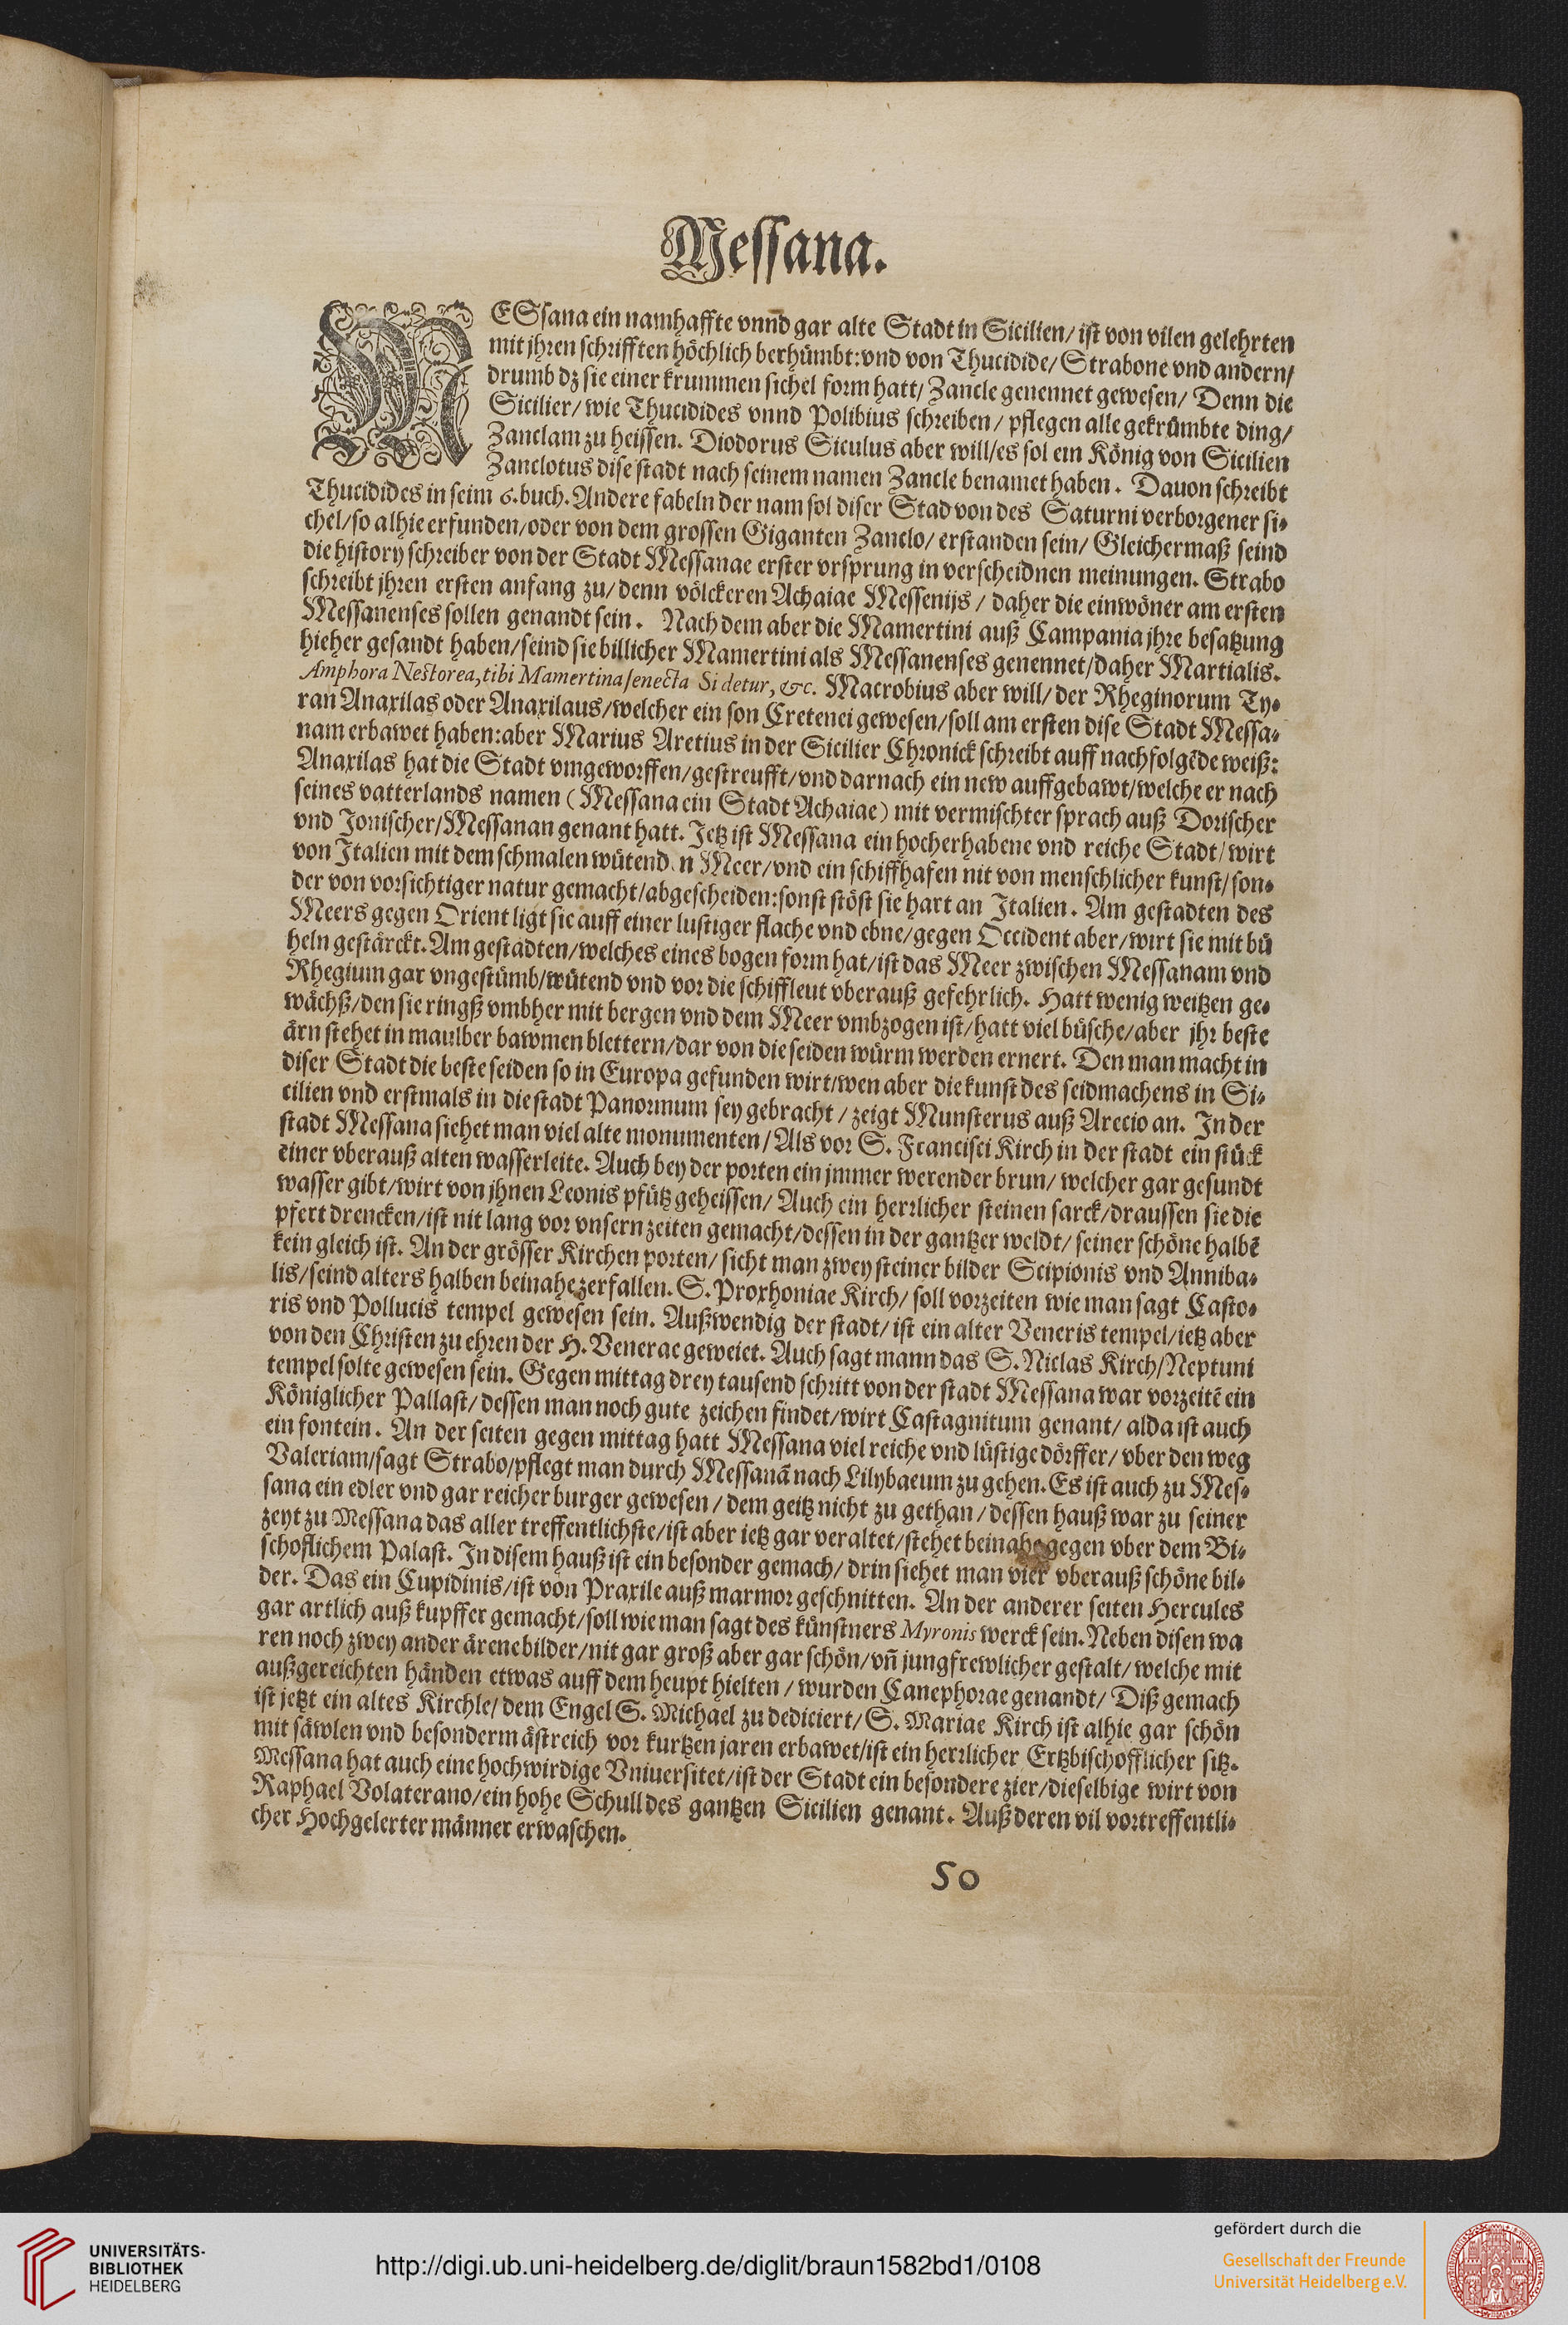 Messana.
MESsana ein namhaffte vnnd gar alte Stadt in Sicilien/ ist von vilen gelehrten
mit jhren schrifften höchlich berhümbt: vnd von Thucidide/ Strabone vnd andern/
drumb dz sie einer krummen sichel form hatt/ Zancle genennet gewesen/ Denn die
Sicilier/ wie Thucidides vnnd Polibius schreiben/ pflegen alle gekrümbte ding/
Zanclam zu heissen. Diodorus Siculus aber will/ es sol ein König von Sicilien
Zanclotus dise stadt nach seinem namen Zancle benamet haben. Dauon schreibt
Thucidides in seim 6. buch. Andere fabeln der nam sol diser Stad von des Saturni verborgener si-
chel/ so alhie erfunden/ oder von dem grossen Giganten Zanclo/ erstanden sein/ Gleichermaß seind
die history schreiber von der Stadt Messanae erster vrsprung in verscheidnen meinungen. Strabo
schreibt jhren ersten anfang zu/ denn völckeren Achaiae Messenijs/ daher die einwöner am ersten
Messanenses sollen genandt sein. Nach dem aber die Mamertini auß Campania jhre besatzung
hieher gesandt haben/ seind sie billicher Mamertini als Messanenses genennet/ daher Martialis.
Amphora Nestorea, tibi Mamertina senecta Si detur, &c. Macrobius aber will/ der Rheginorum Ty-
ran Anaxilas oder Anaxilaus/ welcher ein son Cretenei gewesen/ soll am ersten dise Stadt Messa-
nam erbawet haben: aber Marius Aretius in der Sicilier Chronick schreibt auff nachfolgēde weiß:
Anaxilas hat die Stadt vmgeworffen/ gestreufft/ vnd darnach ein new auffgebawt/ welche er nach
seines vatterlands namen (Messana ein Stadt Achaiae) mit vermischter sprach auß Dorischer
vnd Jonischer/ Messanan genant hatt. Jetz ist Messana ein hocherhabene vnd reiche Stadt/ wirt
von Italien mit dem schmalen wütend n Meer/ vnd ein schiffhafen nit von menschlicher kunst/ son-
der von vorsichtiger natur gemacht/ abgescheiden: sonst stöst sie hart an Italien. Am gestadten des
Meers gegen Orient ligt sie auff einer lustiger flache vnd ebne/ gegen Occident aber/ wirt sie mit bü
heln gestärckt. Am gestadten/ welches eines bogen form hat/ ist das Meer zwischen Messanam vnd
Rhegium gar vngestümb/ wütend vnd vor die schiffleut vberauß gefehrlich. Hatt wenig weitzen ge-
wächß/ den sie ringß vmbher mit bergen vnd dem Meer vmbzogen ist/ hatt viel büsche/ aber jhr beste
ärn stehet in maulber bawmen blettern/ dar von die seiden würm werden ernert. Den man macht in
diser Stadt die beste seiden so in Europa gefunden wirt/ wen aber die kunst des seidmachens in Si-
cilien vnd erstmals in die stadt Panormum sey gebracht/ zeigt Munsterus auß Arecio an. In der
stadt Messana siehet man viel alte monumenten/ Als vor S. Francisci Kirch in der stadt ein stück
einer vberauß alten wasserleite. Auch bey der porten ein jmmer werender brun/ welcher gar gesundt
wasser gibt/ wirt von jhnen Leonis pfütz geheissen/ Auch ein herrlicher steinen sarck/ draussen sie die
pfert drencken/ ist nit lang vor vnsern zeiten gemacht/ dessen in der gantzer weldt/ seiner schöne halbē
kein gleich ist. An der grösser Kirchen porten/ sicht man zwey steiner bilder Scipionis vnd Anniba-
lis/ seind alters halben beinahe zerfallen. S. Proxhoniae Kirch/ soll vorzeiten wie man sagt Casto-
ris vnd Pollucis tempel gewesen sein. Außwendig der stadt/ ist ein alter Veneris tempel/ ietz aber
von den Christen zu ehren der H. Venerae geweiet. Auch sagt mann das S. Niclas Kirch/ Neptuni
tempel solte gewesen sein. Gegen mittag drey tausend schritt von der stadt Messana war vorzeitē ein
Königlicher Pallast/ dessen man noch gute zeichen findet/ wirt Castagnitum genant/ alda ist auch
ein fontein. An der seiten gegen mittag hatt Messana viel reiche vnd lüstige dörffer/ vber den weg
Valeriam/ sagt Strabo/ pflegt man durch Messanā nach Lilybaeum zu gehen. Es ist auch zu Mes-
sana ein edler vnd gar reicher burger gewesen/ dem geitz nicht zu gethan/ dessen hauß war zu seiner
zeyt zu Messana das aller treffentlichste/ ist aber ietz gar veraltet/ stehet beinahe gegen vber dem Bi-
schoflichem Palast. In disem hauß ist ein besonder gemach/ drin siehet man vier vberauß schöne bil-
der. Das ein Cupidinis/ ist von Praxile auß marmor geschnitten. An der anderer seiten Hercules
gar artlich auß kupffer gemacht/ soll wie man sagt des künstners Myronis werck sein. Neben disen wa
ren noch zwey ander ärene bilder/ nit gar groß aber gar schön/ vñ jungfrewlicher gestalt/ welche mit
außgereichten händen etwas auff dem heupt hielten/ wurden Canephorae genandt/ Diß gemach
ist jetzt ein altes Kirchle/ dem Engel S. Michael zu dediciert/ S. Mariae Kirch ist alhie gar schön
mit säwlen vnd besonderm ästreich vor kurtzen jaren erbawet/ ist ein herrlicher Ertzbischofflicher sitz.
Messana hat auch eine hochwirdige Vniuersitet/ ist der Stadt ein besondere zier/ dieselbige wirt von
Raphael Volaterano/ ein hohe Schull des gantzen Sicilien genant. Auß deren vil vortreffentli-
cher Hochgelerter männer erwaschen.
50
UNIVERSITÄTS-
BIBLIOTHEK
HEIDELBERG
http://digi.ub.uni-heidelberg.de/diglit/braun1582bd1/0108
gefördert durch die
Gesellschaft der Freunde
Universität Heidelberg e.V.